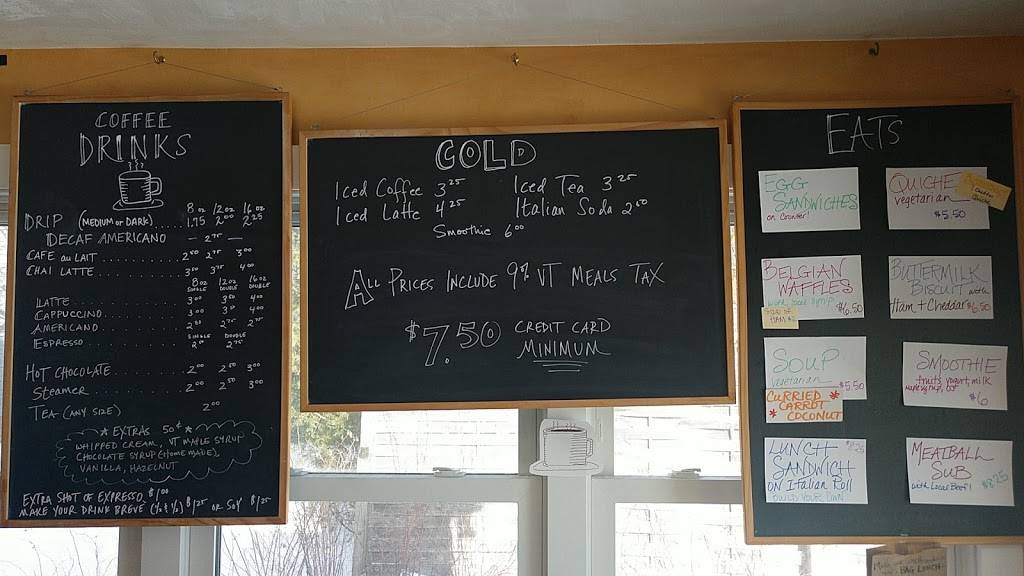 COFFEE
DRINKS
8 oz 12 oz 16 oz
DRIP (MEDIUM OR DARK) ..... 1.75 2.00 2.25
DECAF AMERICANO — 2.75 —
CAFE au LAIT .......... 2.50 2.75 3.00
CHAI LATTE .......... 3.50 3.75 4.00
8 oz 12 oz 16 oz
SINGLE DOUBLE DOUBLE
LATTE .......... 3.00 3.50 4.00
CAPPUCCINO .......... 3.00 4.00
AMERICANO .......... 2.75
SINGLE DOUBLE
ESPRESSO
HOT CHOCOLATE .......... 2.00 2.50 3.00
Steamer .......... 2.00 2.50 3.00
TEA (ANY SIZE) 2.00
★ EXTRAS 50¢ ★
WHIPPED CREAM, VT MAPLE SYRUP
CHOCOLATE SYRUP (HOMEMADE),
VANILLA, HAZELNUT
EXTRA SHOT OF EXPRESSO $1.00
MAKE YOUR DRINK BREVE (½ & ½) $1.25 OR SOY $1.25
COLD
Iced Coffee 3.25 Iced Tea 3.25
Iced Latte 4.25 Italian Soda 2.00
Smoothie 6.00
ALL PRICES INCLUDE 9% VT MEALS TAX
$7.50 CREDIT CARD
MINIMUM
EATS
EGG
SANDWICHES
on Counter!
QUICHE
vegetarian
$5.50
BELGIAN
WAFFLES
$6.50
SIDE OF
BUTTERMILK
BISCUIT with
Ham + Cheddar $6.50
SOUP
vegetarian $5.50
* CURRIED *
CARROT
* COCONUT
SMOOTHIE
fruits, yogurt, milk
$6
LUNCH
SANDWICH
ON Italian Roll
BUILD YOUR OWN
MEATBALL
SUB
with Local Beef! $8.25
BAG LUNCH